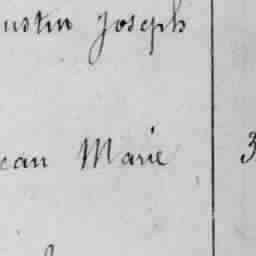 ustin Joseph
ean Marie 3